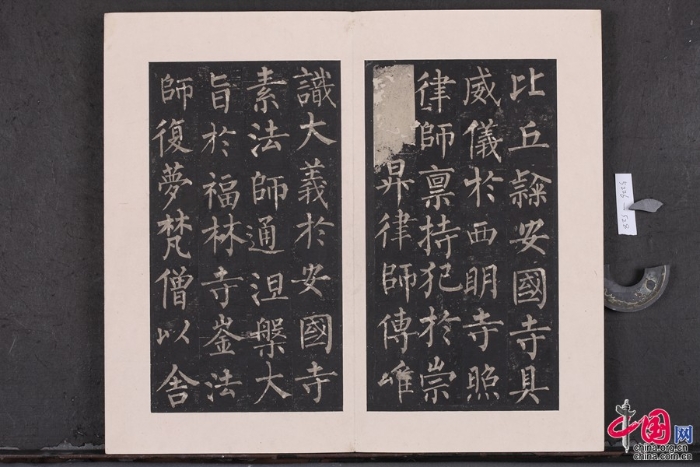 比丘隸安國寺具
威儀於西明寺照
律師稟持犯於崇
昇律師傳唯
識大義於安國寺
素法師通涅槃大
旨於福林寺崟法
師復夢梵僧以舍
中国网
china.org.cn
china.com.cn